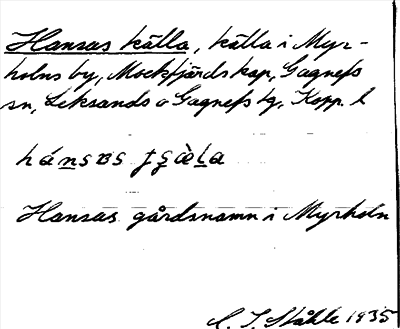 Hansas källa, källa i Myr-
holns by, Mockfjärds kap, Gagnefs
sn, Leksands o Gagnefs tg, Kopp. l
Hansas gårdsnamn i Myrholn
C. I. Ståhle 1935